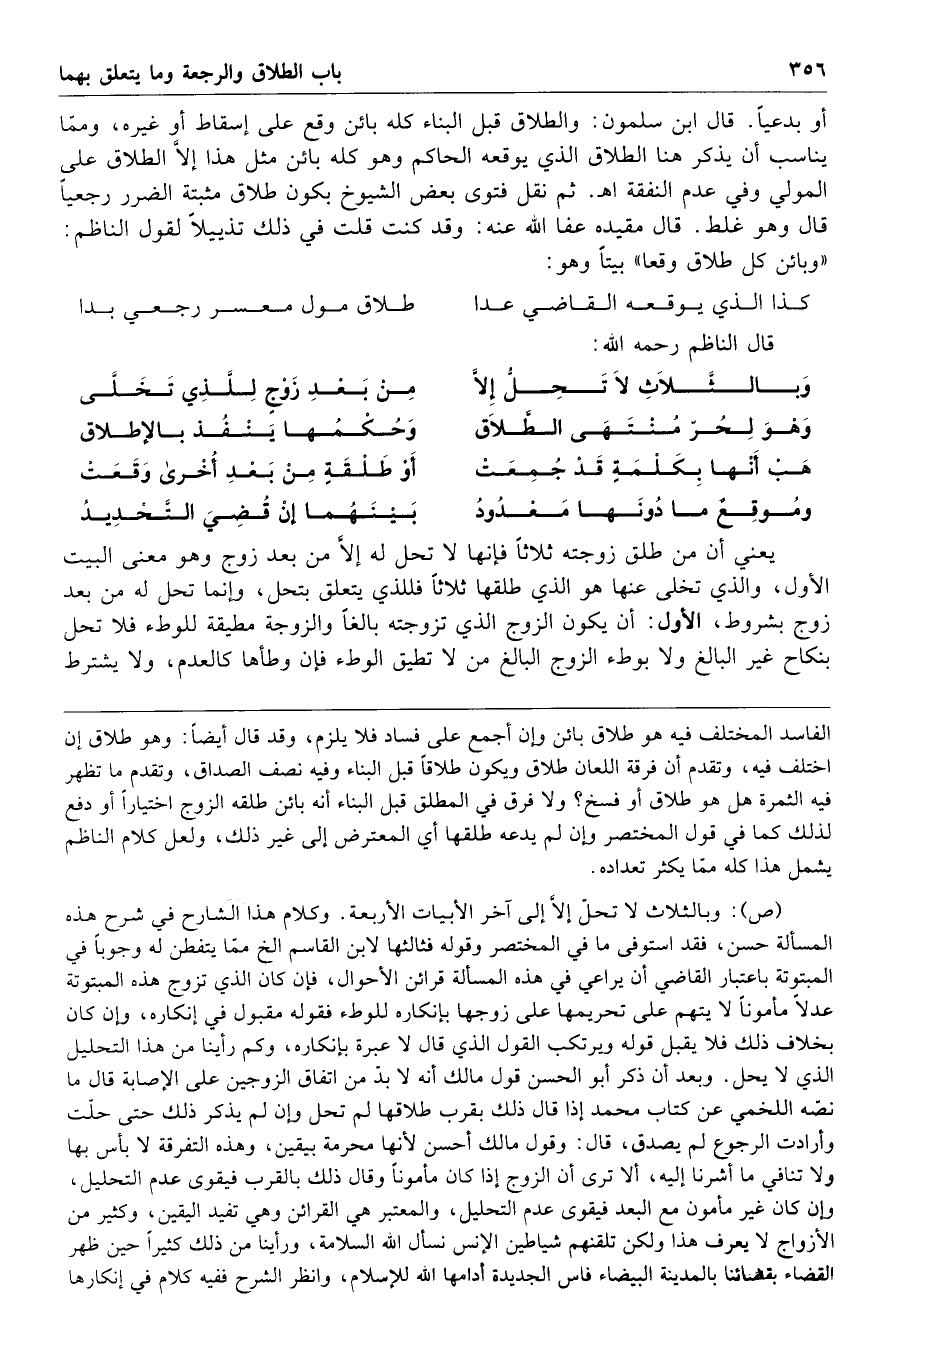 ٣٥٦ باب الطلاق والرجعة وما يتعلق بهما
أو بدعياً. قال ابن سلمون: والطلاق قبل البناء كله بائن وقع على إسقاط أو غيره، وممّا
يناسب أن يذكر هنا الطلاق الذي يوقعه الحاكم وهو كله بائن مثل هذا إلاَّ الطلاق على
المولي وفي عدم النفقة اهـ. ثم نقل فتوى بعض الشيوخ بكون طلاق مثبتة الضرر رجعياً
قال وهو غلط. قال مقيده عفا الله عنه: وقد كنت قلت في ذلك تذييلاً لقول الناظم:
«وبائن كل طلاق وقعا» بيتاً وهو:
كذا الذي يوقعه القاضي عدا طلاق مول معسر رجعي بدا
قال الناظم رحمه الله:
وَبالثَّلاَثِ لاَ تَحِلُّ إلاَّ مِنْ بَعْدِ زَوْجٍ لِلَّذِي تَخَلَّى
وَهْوَ لِحُرّ مُنْتَهَى الطَّلاَق وَحُكْمُها يَنْفُذ بالإطلاق
هَبْ أَنَّها بِكَلْمَةٍ قَدْ جُمِعَتْ أَوْ طَلْقَةٍ مِنْ بَعْدِ أُخْرىٰ وَقَعَتْ
ومُوقِعٌ ما دُونَها مَعْدُودُ بَيْنَهُما إنْ قُضِيَ التَّحْدِيدُ
يعني أن من طلق زوجته ثلاثاً فإنها لا تحل له إلاَّ من بعد زوج وهو معنى البيت
الأول، والذي تخلى عنها هو الذي طلقها ثلاثاً فللذي يتعلق بتحل، وإنما تحل له من بعد
زوج بشروط، الأول: أن يكون الزوج الذي تزوجته بالغاً والزوجة مطيقة للوطء فلا تحل
بنكاح غير البالغ ولا بوطء الزوج البالغ من لا تطيق الوطء فإن وطأها كالعدم، ولا يشترط
الفاسد المختلف فيه هو طلاق بائن وإن أجمع على فساد فلا يلزم، وقد قال أيضاً: وهو طلاق إن
اختلف فيه، وتقدم أن فرقة اللعان طلاق ويكون طلاقاً قبل البناء وفيه نصف الصداق، وتقدم ما تظهر
فيه الثمرة هل هو طلاق أو فسخ؟ ولا فرق في المطلق قبل البناء أنه بائن طلقه الزوج اختياراً أو دفع
لذلك كما في قول المختصر وإن لم يدعه طلقها أي المعترض إلى غير ذلك، ولعل كلام الناظم
يشمل هذا كله ممّا يكثر تعداده.
(ص): وبالثلاث لا تحلّ إلاَّ إلى آخر الأبيات الأربعة. وكلام هذا الشارح في شرح هذه
المسألة حسن، فقد استوفى ما في المختصر وقوله فثالثها لابن القاسم الخ ممّا يتفطن له وجوباً في
المبتوتة باعتبار القاضي أن يراعي في هذه المسألة قرائن الأحوال، فإن كان الذي تزوج هذه المبتوتة
عدلاً مأموناً لا يتهم على تحريمها على زوجها بإنكاره للوطء فقوله مقبول في إنكاره، وإن كان
بخلاف ذلك فلا يقبل قوله ويرتكب القول الذي قال لا عبرة بإنكاره، وكم رأينا من هذا التحليل
الذي لا يحل. وبعد أن ذكر أبو الحسن قول مالك أنه لا بدّ من اتفاق الزوجين على الإصابة قال ما
نصّه اللخمي عن كتاب محمد إذا قال ذلك بقرب طلاقها لم تحل وإن لم يذكر ذلك حتى حلّت
وأرادت الرجوع لم يصدق، قال: وقول مالك أحسن لأنها محرمة بيقين، وهذه التفرقة لا بأس بها
ولا تنافي ما أشرنا إليه، ألا ترى أن الزوج إذا كان مأموناً وقال ذلك بالقرب فيقوى عدم التحليل،
وإن كان غير مأمون مع البعد فيقوى عدم التحليل، والمعتبر هي القرائن وهي تفيد اليقين، وكثير من
الأزواج لا يعرف هذا ولكن تلقنهم شياطين الإنس نسأل الله السلامة، ورأينا من ذلك كثيراً حين ظهر
القضاء بقضائنا بالمدينة البيضاء فاس الجديدة أدامها الله للإسلام، وانظر الشرح ففيه كلام في إنكارها